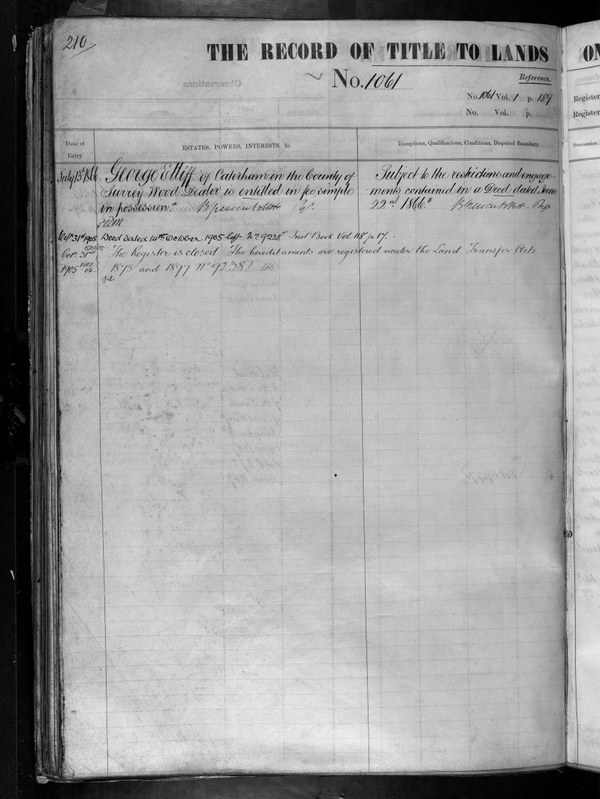 210
THE RECORD OF TITLE TO LANDS
No. 1061
Reference.
No. 1061 Vol. 1 p. 189
No. Vol. p.
Date of
Entry
ESTATES, POWERS, INTERESTS, &c.
Exceptions, Qualifications, Conditions, Disputed Boundary.
July 13th 1866
George Elliff of Caterham in the County of
Surrey Wood Dealer is entitled in fee simple
in possession.
Subject to the restrictions and engage-
ments contained in a Deed dated June
22nd 1866.
31st 1905 Deed dated 14th October 1905 Vol 118 p 17.
Octr 31st The Register is closed. The hereditaments are registered under the Land Transfer Acts
1905 1875 and 1897 No 92381
ON
Register
Register